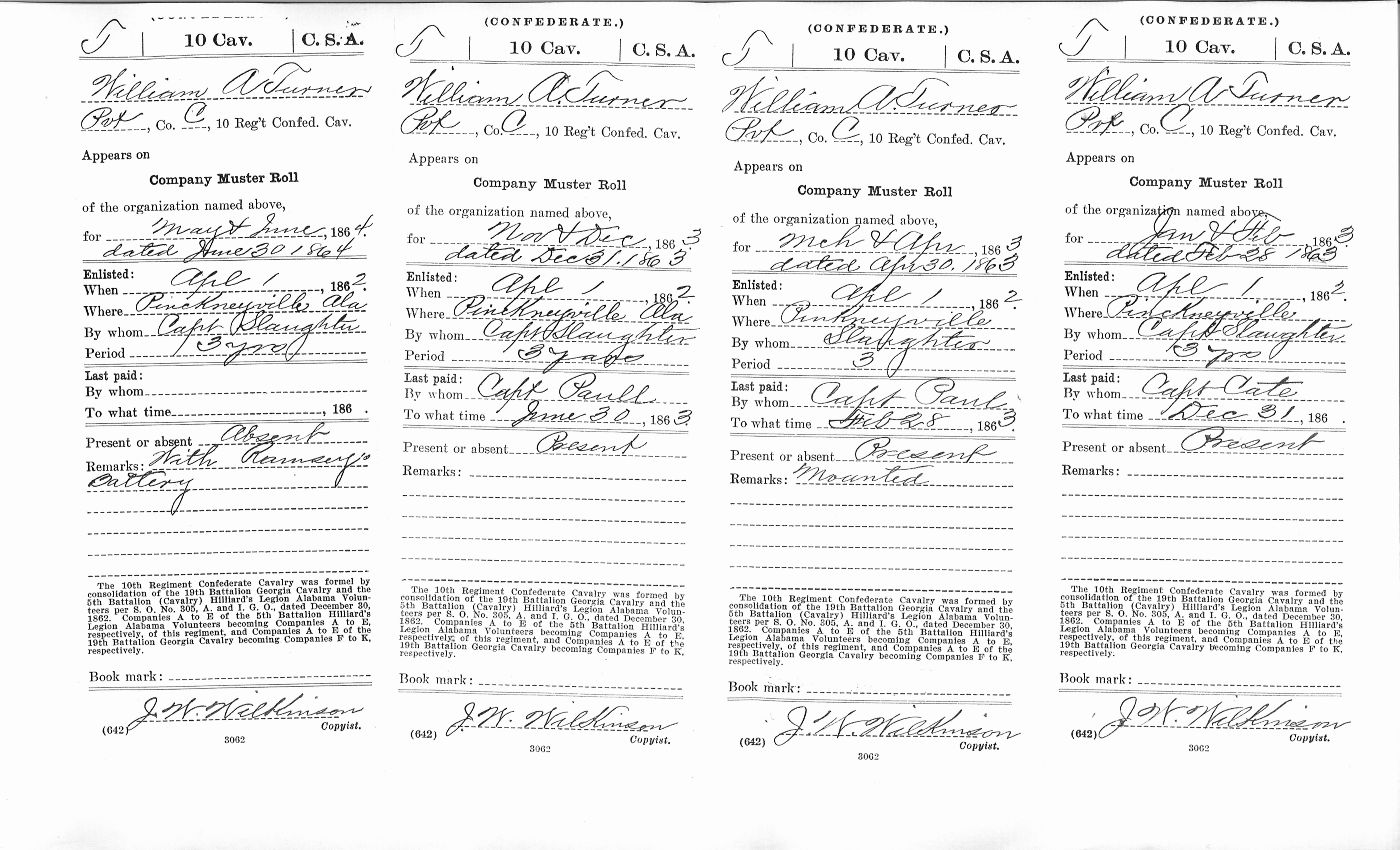 T 10 Cav. C. S. A.
William A Turner
Pvt, Co. C, 10 Reg't Confed. Cav.
Appears on
Company Muster Roll
of the organization named above,
for May & June, 1864.
dated June 30 1864
Enlisted:
When Apl 1, 1862.
Where Pinckneyville Ala
By whom Capt Slaughter
Period 3 yrs
Last paid:
By whom
To what time, 186 .
Present or absent Absent
Remarks: With Ramsey's
Battery
The 10th Regiment Confederate Cavalry was formed by
consolidation of the 19th Battalion Georgia Cavalry and the
5th Battalion (Cavalry) Hilliard's Legion Alabama Volun-
teers per S. O. No. 305, A. and I. G. O., dated December 30,
1862. Companies A to E of the 5th Battalion Hilliard's
Legion Alabama Volunteers becoming Companies A to E,
respectively, of this regiment, and Companies A to E of the
19th Battalion Georgia Cavalry becoming Companies F to K,
respectively.
Book mark:
J. W. Wilkinson
(642) Copyist.
3062
(CONFEDERATE.)
T 10 Cav. C. S. A.
William A. Turner
Pvt, Co. C, 10 Reg't Confed. Cav.
Appears on
Company Muster Roll
of the organization named above,
for Nov & Dec, 1863
dated Dec 31. 1863
Enlisted:
When Apl 1, 1862.
Where Pinckneyville Ala
By whom Capt Slaughter
Period 3 years
Last paid:
By whom Capt Paull
To what time June 30, 1863
Present or absent Present
Remarks:
The 10th Regiment Confederate Cavalry was formed by
consolidation of the 19th Battalion Georgia Cavalry and the
5th Battalion (Cavalry) Hilliard's Legion Alabama Volun-
teers per S. O. No. 305, A. and I. G. O., dated December 30,
1862. Companies A to E of the 5th Battalion Hilliard's
Legion Alabama Volunteers becoming Companies A to E,
respectively, of this regiment, and Companies A to E of the
19th Battalion Georgia Cavalry becoming Companies F to K,
respectively.
Book mark:
J. W. Wilkinson
(642) Copyist.
3062
(CONFEDERATE.)
T 10 Cav. C. S. A.
William A Turner
Pvt, Co. C, 10 Reg't Confed. Cav.
Appears on
Company Muster Roll
of the organization named above,
for Mch & Apr, 1863
dated Apr 30. 1863
Enlisted:
When Apl 1, 1862
Where Pinkneyville
By whom Slaughter
Period 3
Last paid:
By whom Capt Paul
To what time Feb 28, 1863.
Present or absent Present
Remarks: Mounted
The 10th Regiment Confederate Cavalry was formed by
consolidation of the 19th Battalion Georgia Cavalry and the
5th Battalion (Cavalry) Hilliard's Legion Alabama Volun-
teers per S. O. No. 305, A. and I. G. O., dated December 30,
1862. Companies A to E of the 5th Battalion Hilliard's
Legion Alabama Volunteers becoming Companies A to E,
respectively, of this regiment, and Companies A to E of the
19th Battalion Georgia Cavalry becoming Companies F to K,
respectively.
Book mark:
J. W. Wilkinson
(642) Copyist.
3062
(CONFEDERATE.)
T 10 Cav. C. S. A.
William A Turner
Pvt, Co. C, 10 Reg't Confed. Cav.
Appears on
Company Muster Roll
of the organization named above,
for Jan & Feb, 1863
dated Feb 28 1863
Enlisted:
When Apl 1, 1862.
Where Pinckneyville
By whom Capt Slaughter
Period 3 yrs
Last paid:
By whom Capt Cate
To what time Dec 31, 186 .
Present or absent Present
Remarks:
The 10th Regiment Confederate Cavalry was formed by
consolidation of the 19th Battalion Georgia Cavalry and the
5th Battalion (Cavalry) Hilliard's Legion Alabama Volun-
teers per S. O. No. 305, A. and I. G. O., dated December 30,
1862. Companies A to E of the 5th Battalion Hilliard's
Legion Alabama Volunteers becoming Companies A to E,
respectively, of this regiment, and Companies A to E of the
19th Battalion Georgia Cavalry becoming Companies F to K,
respectively.
Book mark:
J. W. Wilkinson
(642) Copyist.
3062